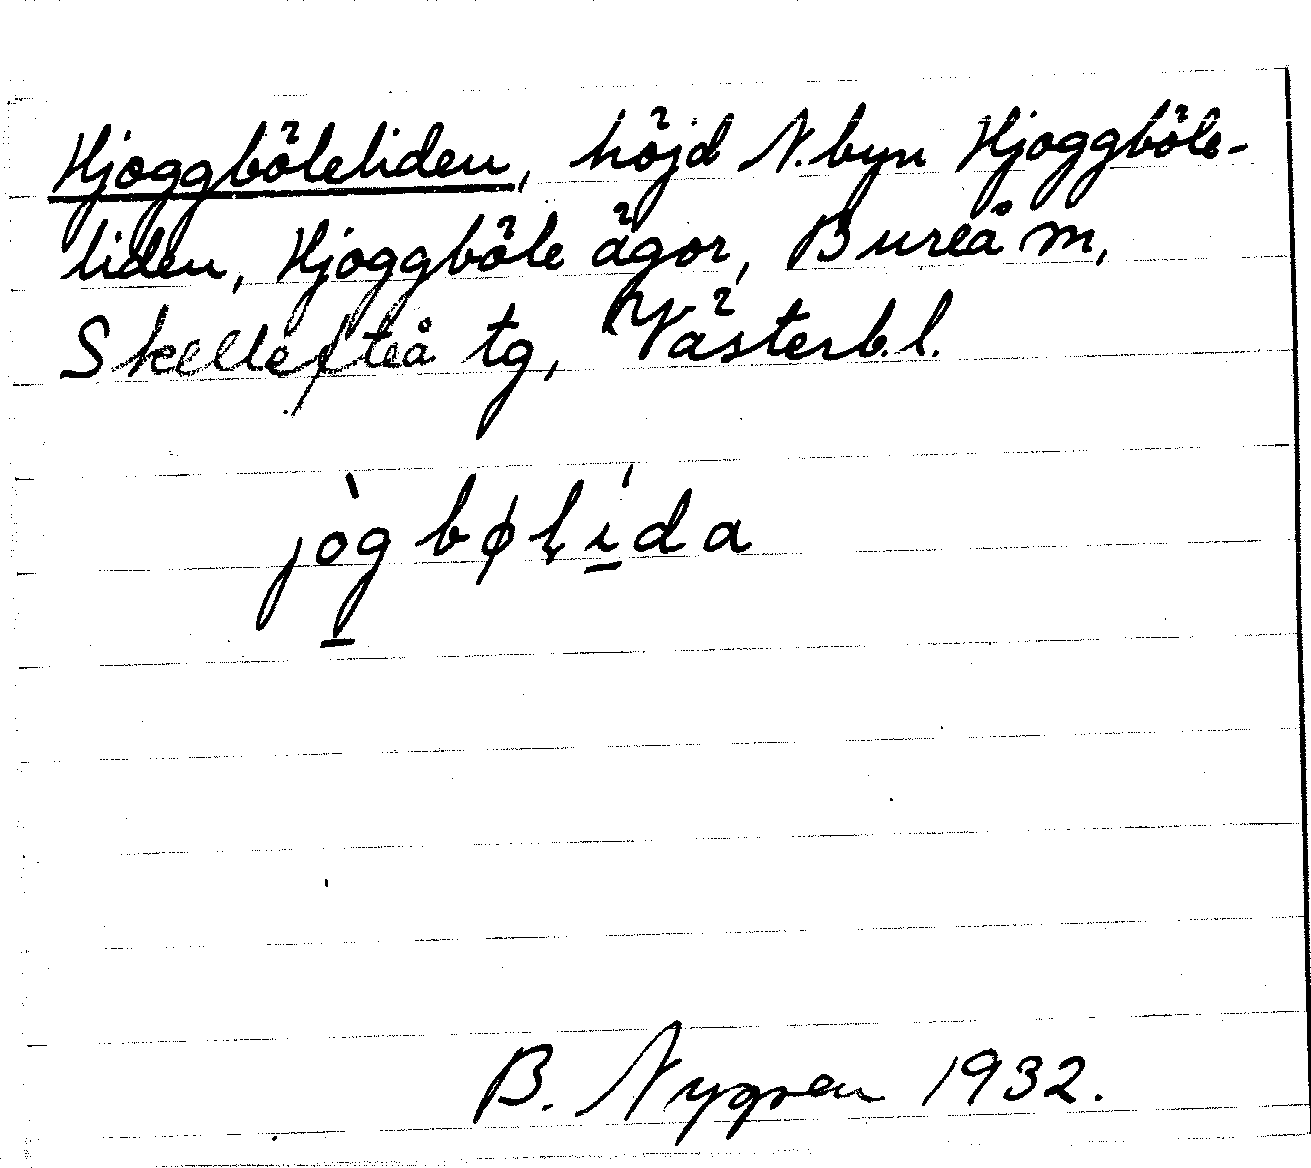 Hjoggböleliden, höjd N. byn Hjoggböle-
liden, Hjoggböle ägor, Bureå m,
Skellefteå tg, Västerb. l.
jo̍̀g̲bøḷí̲da
B. Nygren 1932.